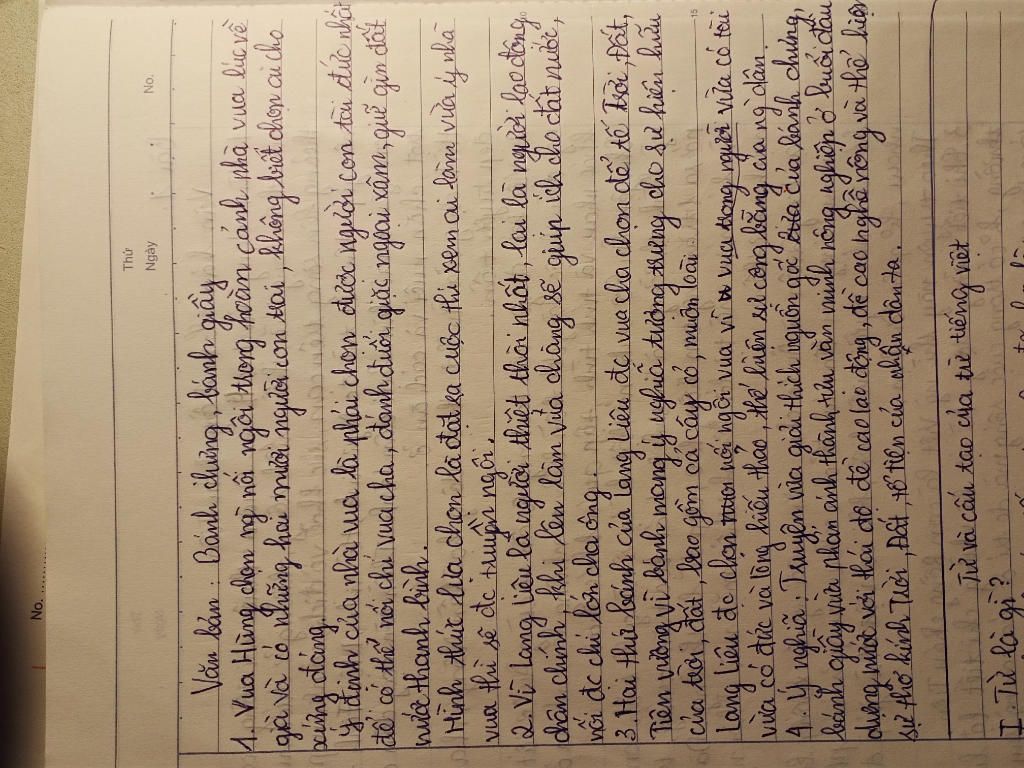 No.
Thứ
Ngày
No.
Văn bản: Bánh chưng, bánh giầy
1. Vua Hùng chọn ng nối ngôi trong hoàn cảnh nhà vua lúc về
già và có những hai mươi người con trai, không biết chọn ai cho
xứng đáng.
Ý định của nhà vua là phải chọn được người con tài đức nhất
để có thể nối chí vua cha, đánh đuổi giặc ngoại xâm, giữ gìn đất
nước thanh bình.
Hình thức lựa chọn là đặt ra cuộc thi xem ai làm vừa ý nhà
vua thì sẽ đc truyền ngôi.
2. Vì Lang Liêu là người thiệt thòi nhất, lại là người lao động
chân chính, khi lên làm vua chàng sẽ giúp ích cho đất nước,
nối đc chí lớn cha ông.
3. Hai thứ bánh của Lang Liêu đc vua cha chọn để tế Trời, Đất,
Tiên vương vì bánh mang ý nghĩa tượng trưng cho sự hiện hữu
của trời, đất, bao gồm cả cây cỏ, muôn loài.
Lang Liêu đc chọn nối ngôi vua vì vua trong người vừa có tài
vừa có đức và lòng hiếu thảo, thể hiện sự công bằng của ng dân.
4. Ý nghĩa: Truyện vừa giải thích nguồn gốc của bánh chưng,
bánh giầy vừa phản ánh thành tựu văn minh nông nghiệp ở buổi đầu
dựng nước với thái độ đề cao lao động, đề cao nghề nông và thể hiện
sự thờ kính Trời, Đất, tổ tiên của nhân dân ta.
Từ và cấu tạo của từ tiếng việt
I. Từ là gì?